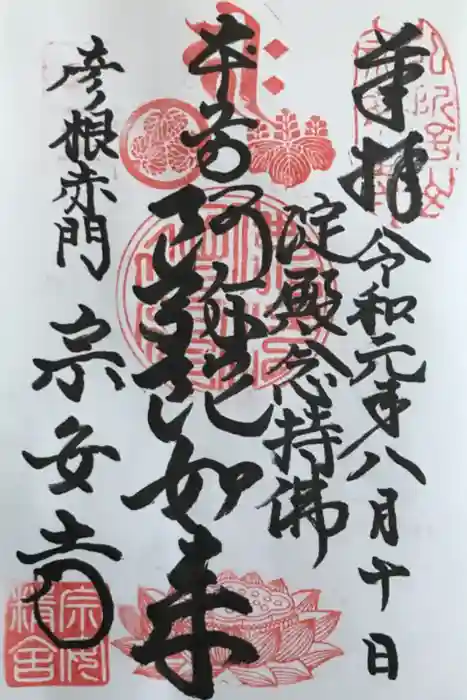 奉拝 令和元年八月十日
淀殿念持佛
本尊 阿弥陀如来
彦根赤門
宗安寺